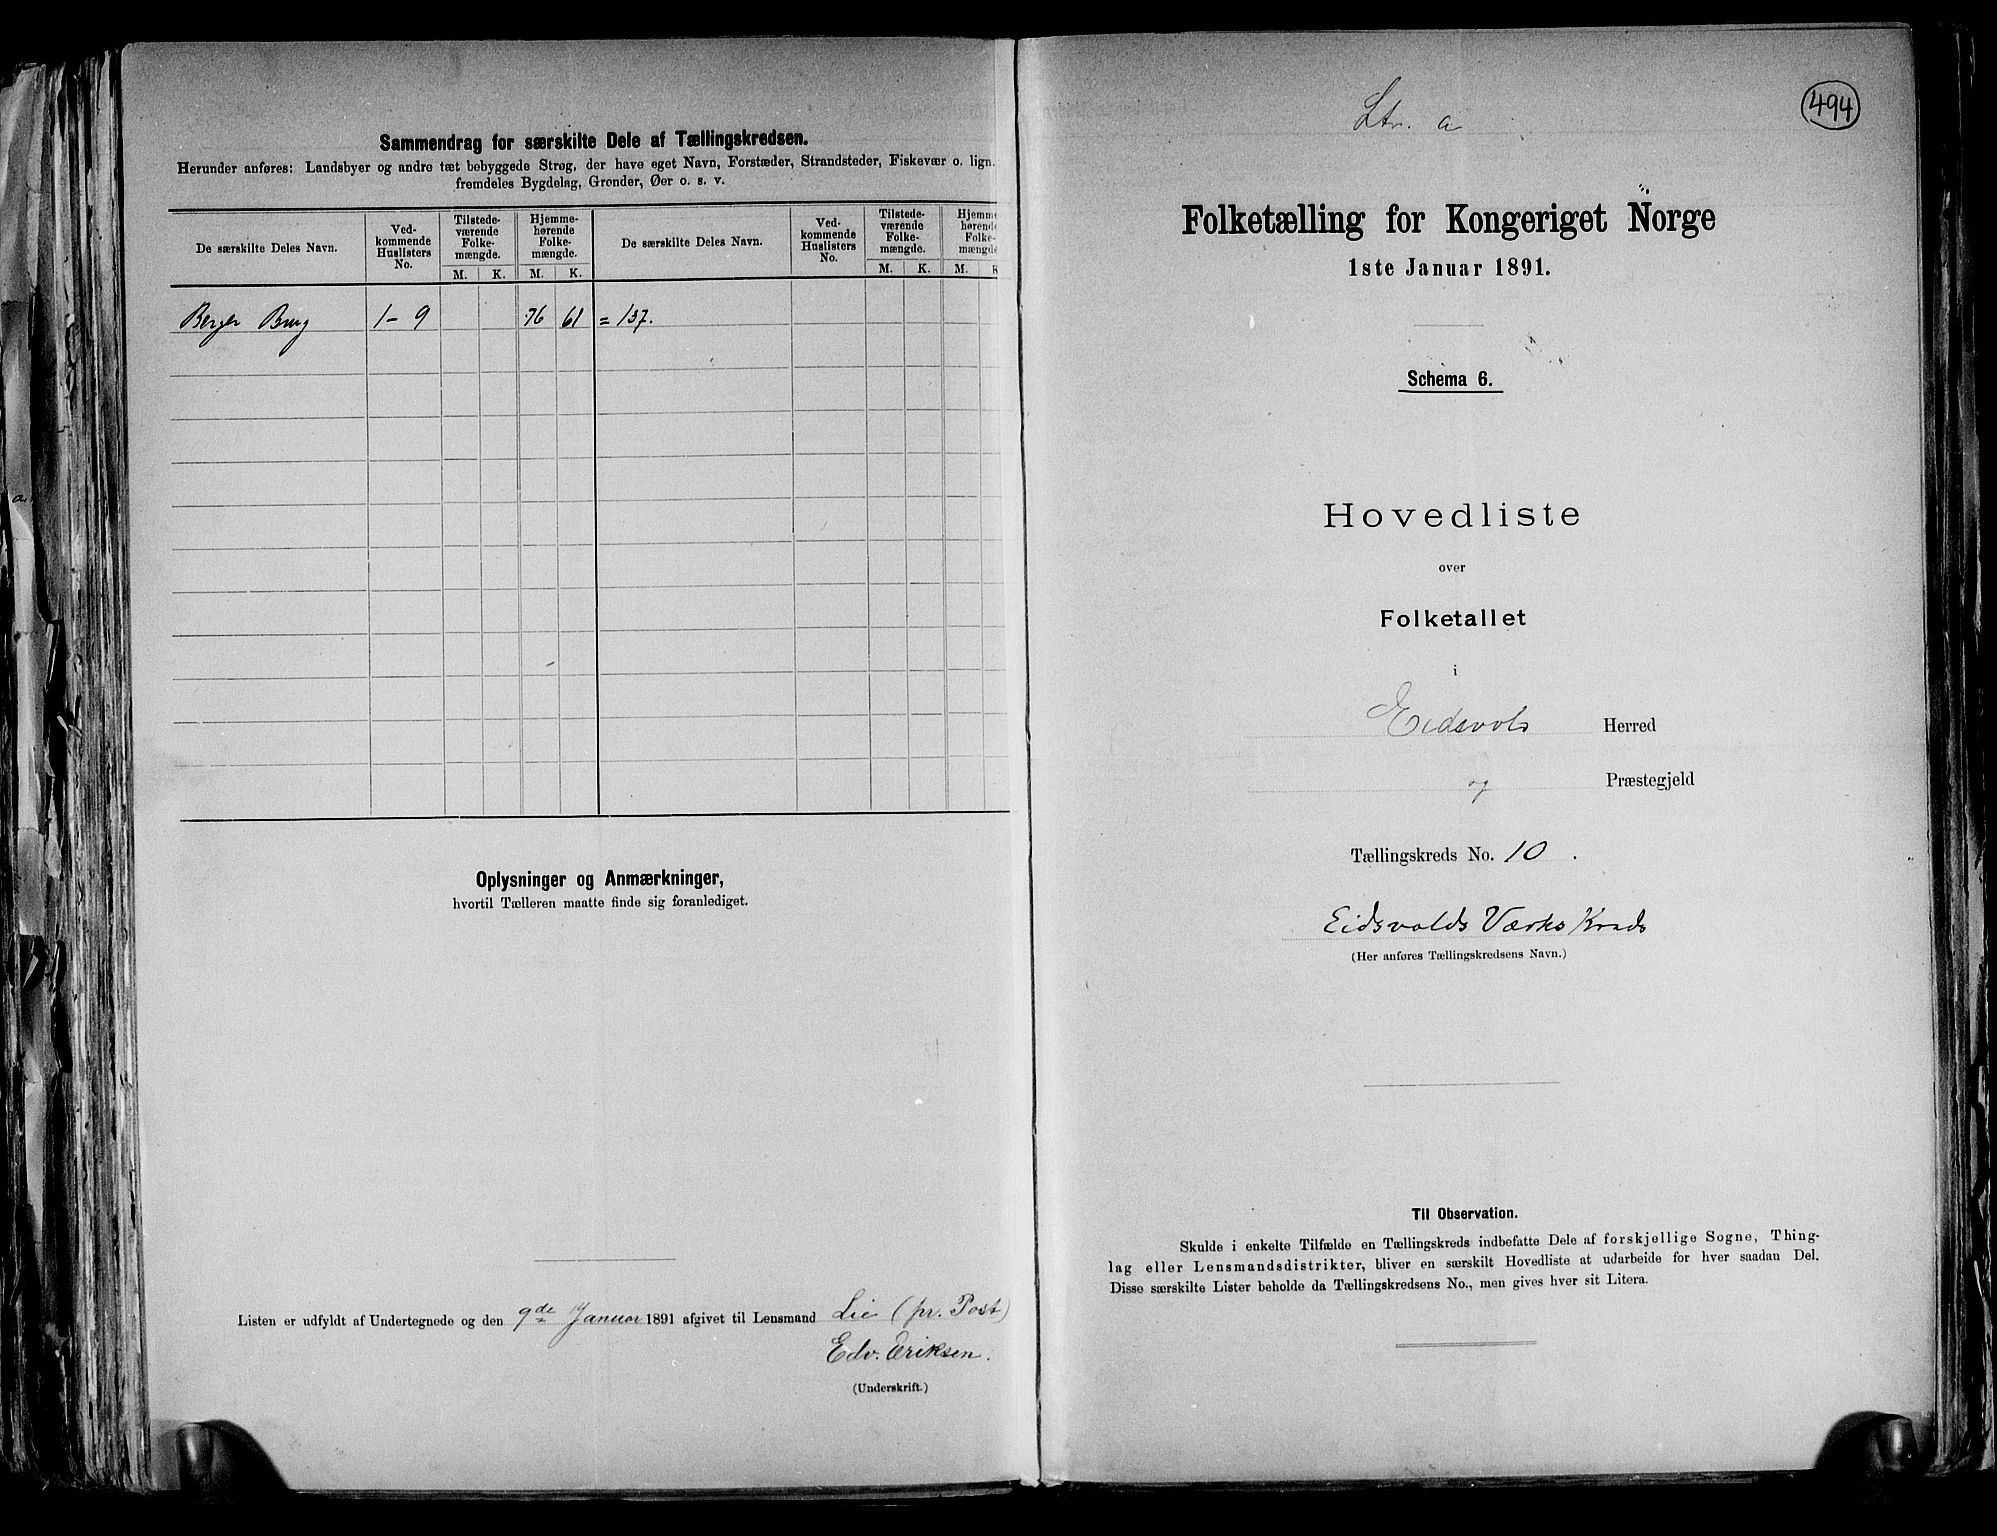 Sammendrag for særskilte Dele af Tællingskredsen.
Herunder anføres: Landsbyer og andre tæt bebyggede Strøg, der have eget Navn, Forstæder, Strandsteder, Fiskevær o. lign.
fremdeles Bygdelag, Grender, Øer o. s. v.
De særskilte Deles Navn. Ved-kommende Huslisters No. Tilstede-værende Folke-mængde. Hjemme-hørende Folke-mængde. De særskilte Deles Navn. Ved-kommende Huslisters No. Tilstede-værende Folke-mængde. Hjemme-hørende Folke-mængde
M. K. M. K. M. K. M. K
Berger Brug 1-9 76 61 = 137.
Oplysninger og Anmærkninger,
hvortil Tælleren maatte finde sig foranlediget.
Listen er udfyldt af Undertegnede og den 9de Januar 1891 afgivet til Lensmand Lie (pr. Post)
Edv. Eriksen.
(Underskrift.)
Ltr. a
494
Folketælling for Kongeriget Norge
1ste Januar 1891.
Schema 6.
Hovedliste
over
Folketallet
i
Eidsvols Herred
og Præstegjeld
Tællingskreds No. 10.
Eidsvolds Værks Kreds
(Her anføres Tællingskredsens Navn.)
Til Observation.
Skulde i enkelte Tilfælde en Tællingskreds indbefatte Dele af forskjellige Sogne, Thing-
lag eller Lensmandsdistrikter, bliver en særskilt Hovedliste at udarbeide for hver saadan Del.
Disse særskilte Lister beholde da Tællingskredsens No., men gives hver sit Litera.